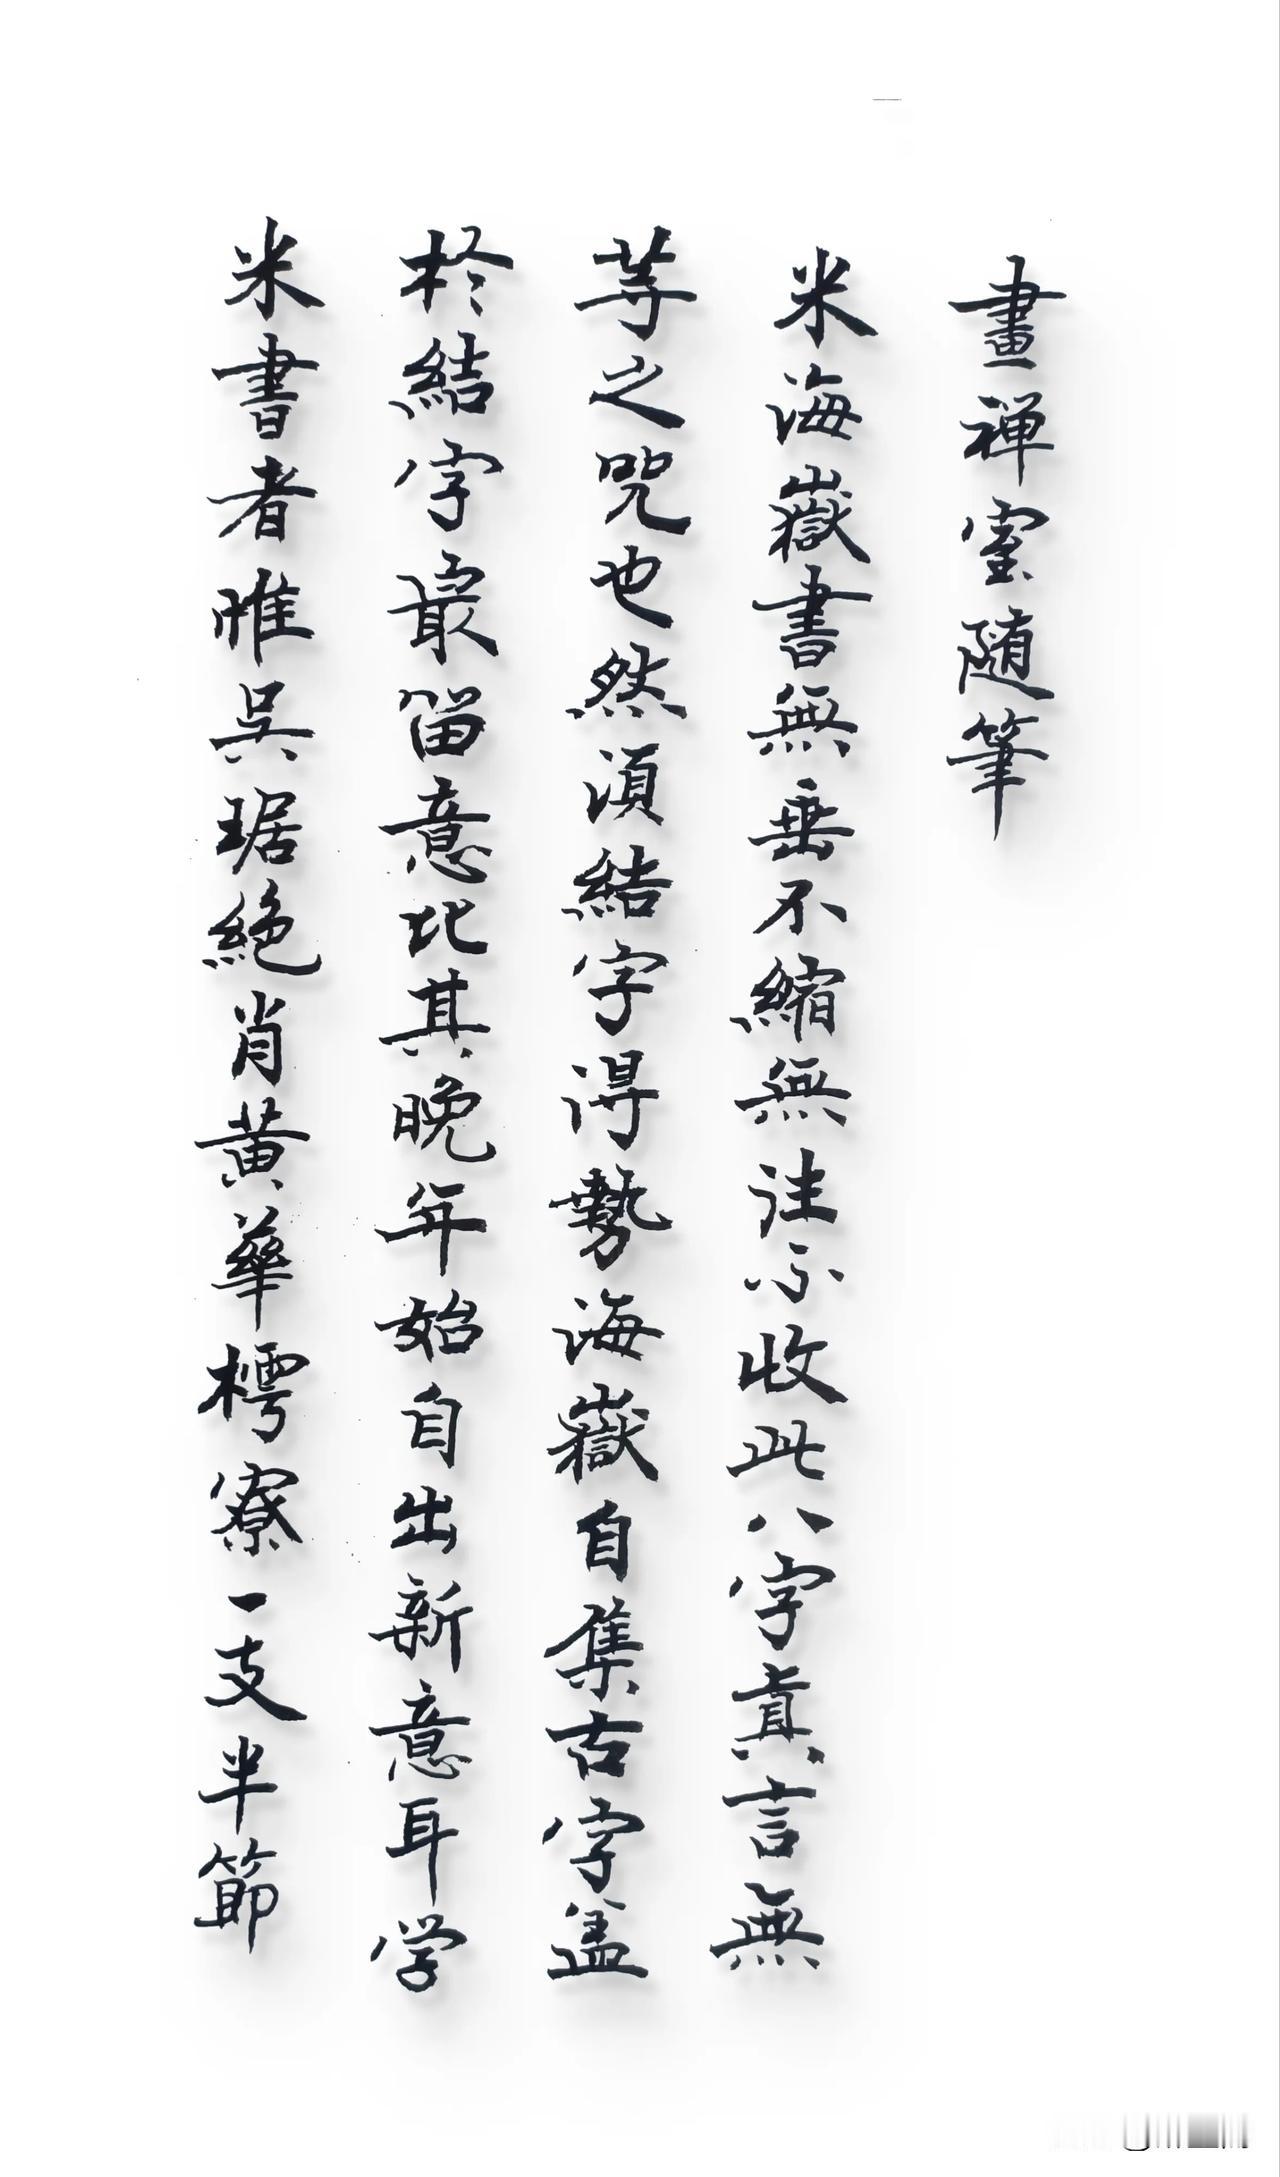 畫禅室随筆
米海嶽書無垂不縮無往不收此八字真言無
等之咒也然須結字得勢海嶽自集古字盖
於結字最留意比其晚年始自出新意耳学
米書者唯吳琚絕肖黃華樗寮一支半節